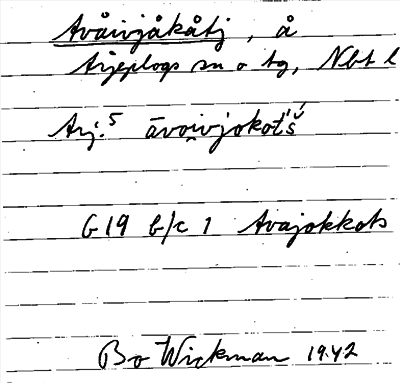 Avåivjåkåtj, å
Arjeplogs sn o tg, Nbt l
Arj.5 āvoi̭vjokot́š́
G 19 b/c 1 Avajokkots
Bo Wickman 1942